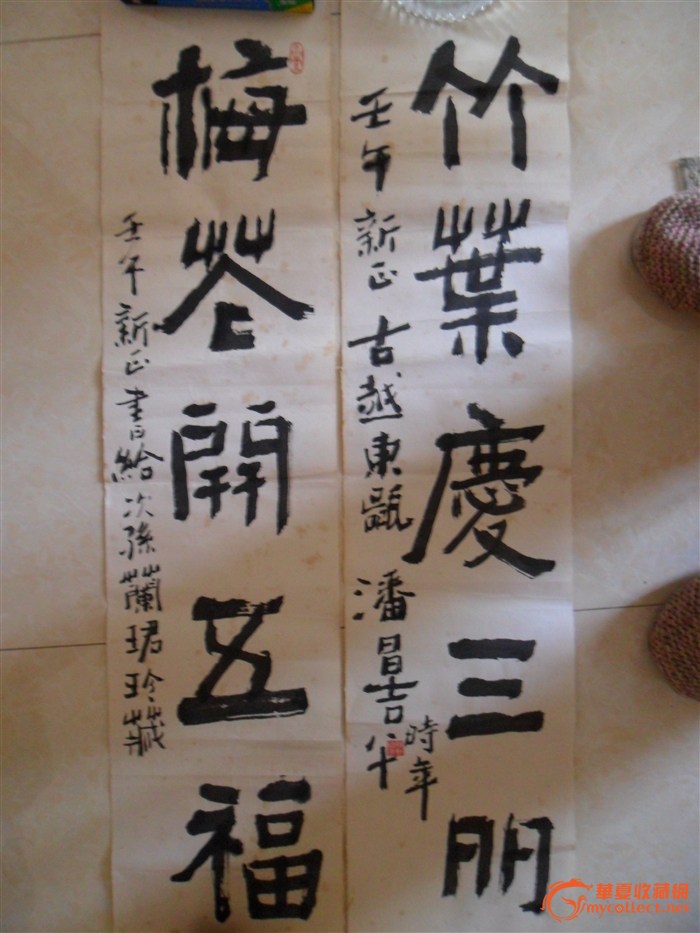 竹葉慶三朋
壬午新正古越東甌潘昌吉
時年
八十
梅花開五福
壬午新正書給次孫蘭珺珍藏
華夏收藏網
mycollect.net